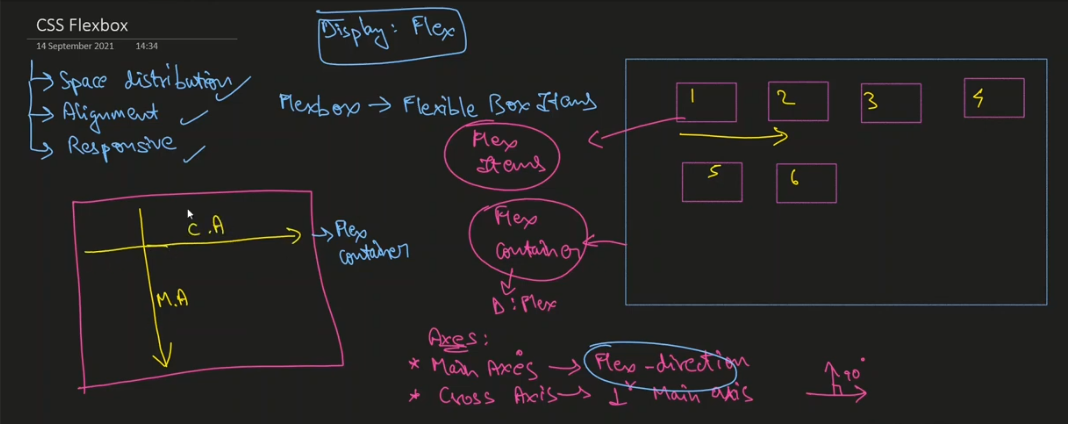 CSS Flexbox
14 September 2021 14:34
Display: Flex
Space distribution
Alignment
Responsive
Flexbox → Flexible Box Items
1 2 3 4
5 6
Flex
Items
Flex
container
D: Flex
C.A
M.A
Flex
container
Axes:
* Main Axes → Flex-direction
* Cross Axis → ⊥r Main axis
90°